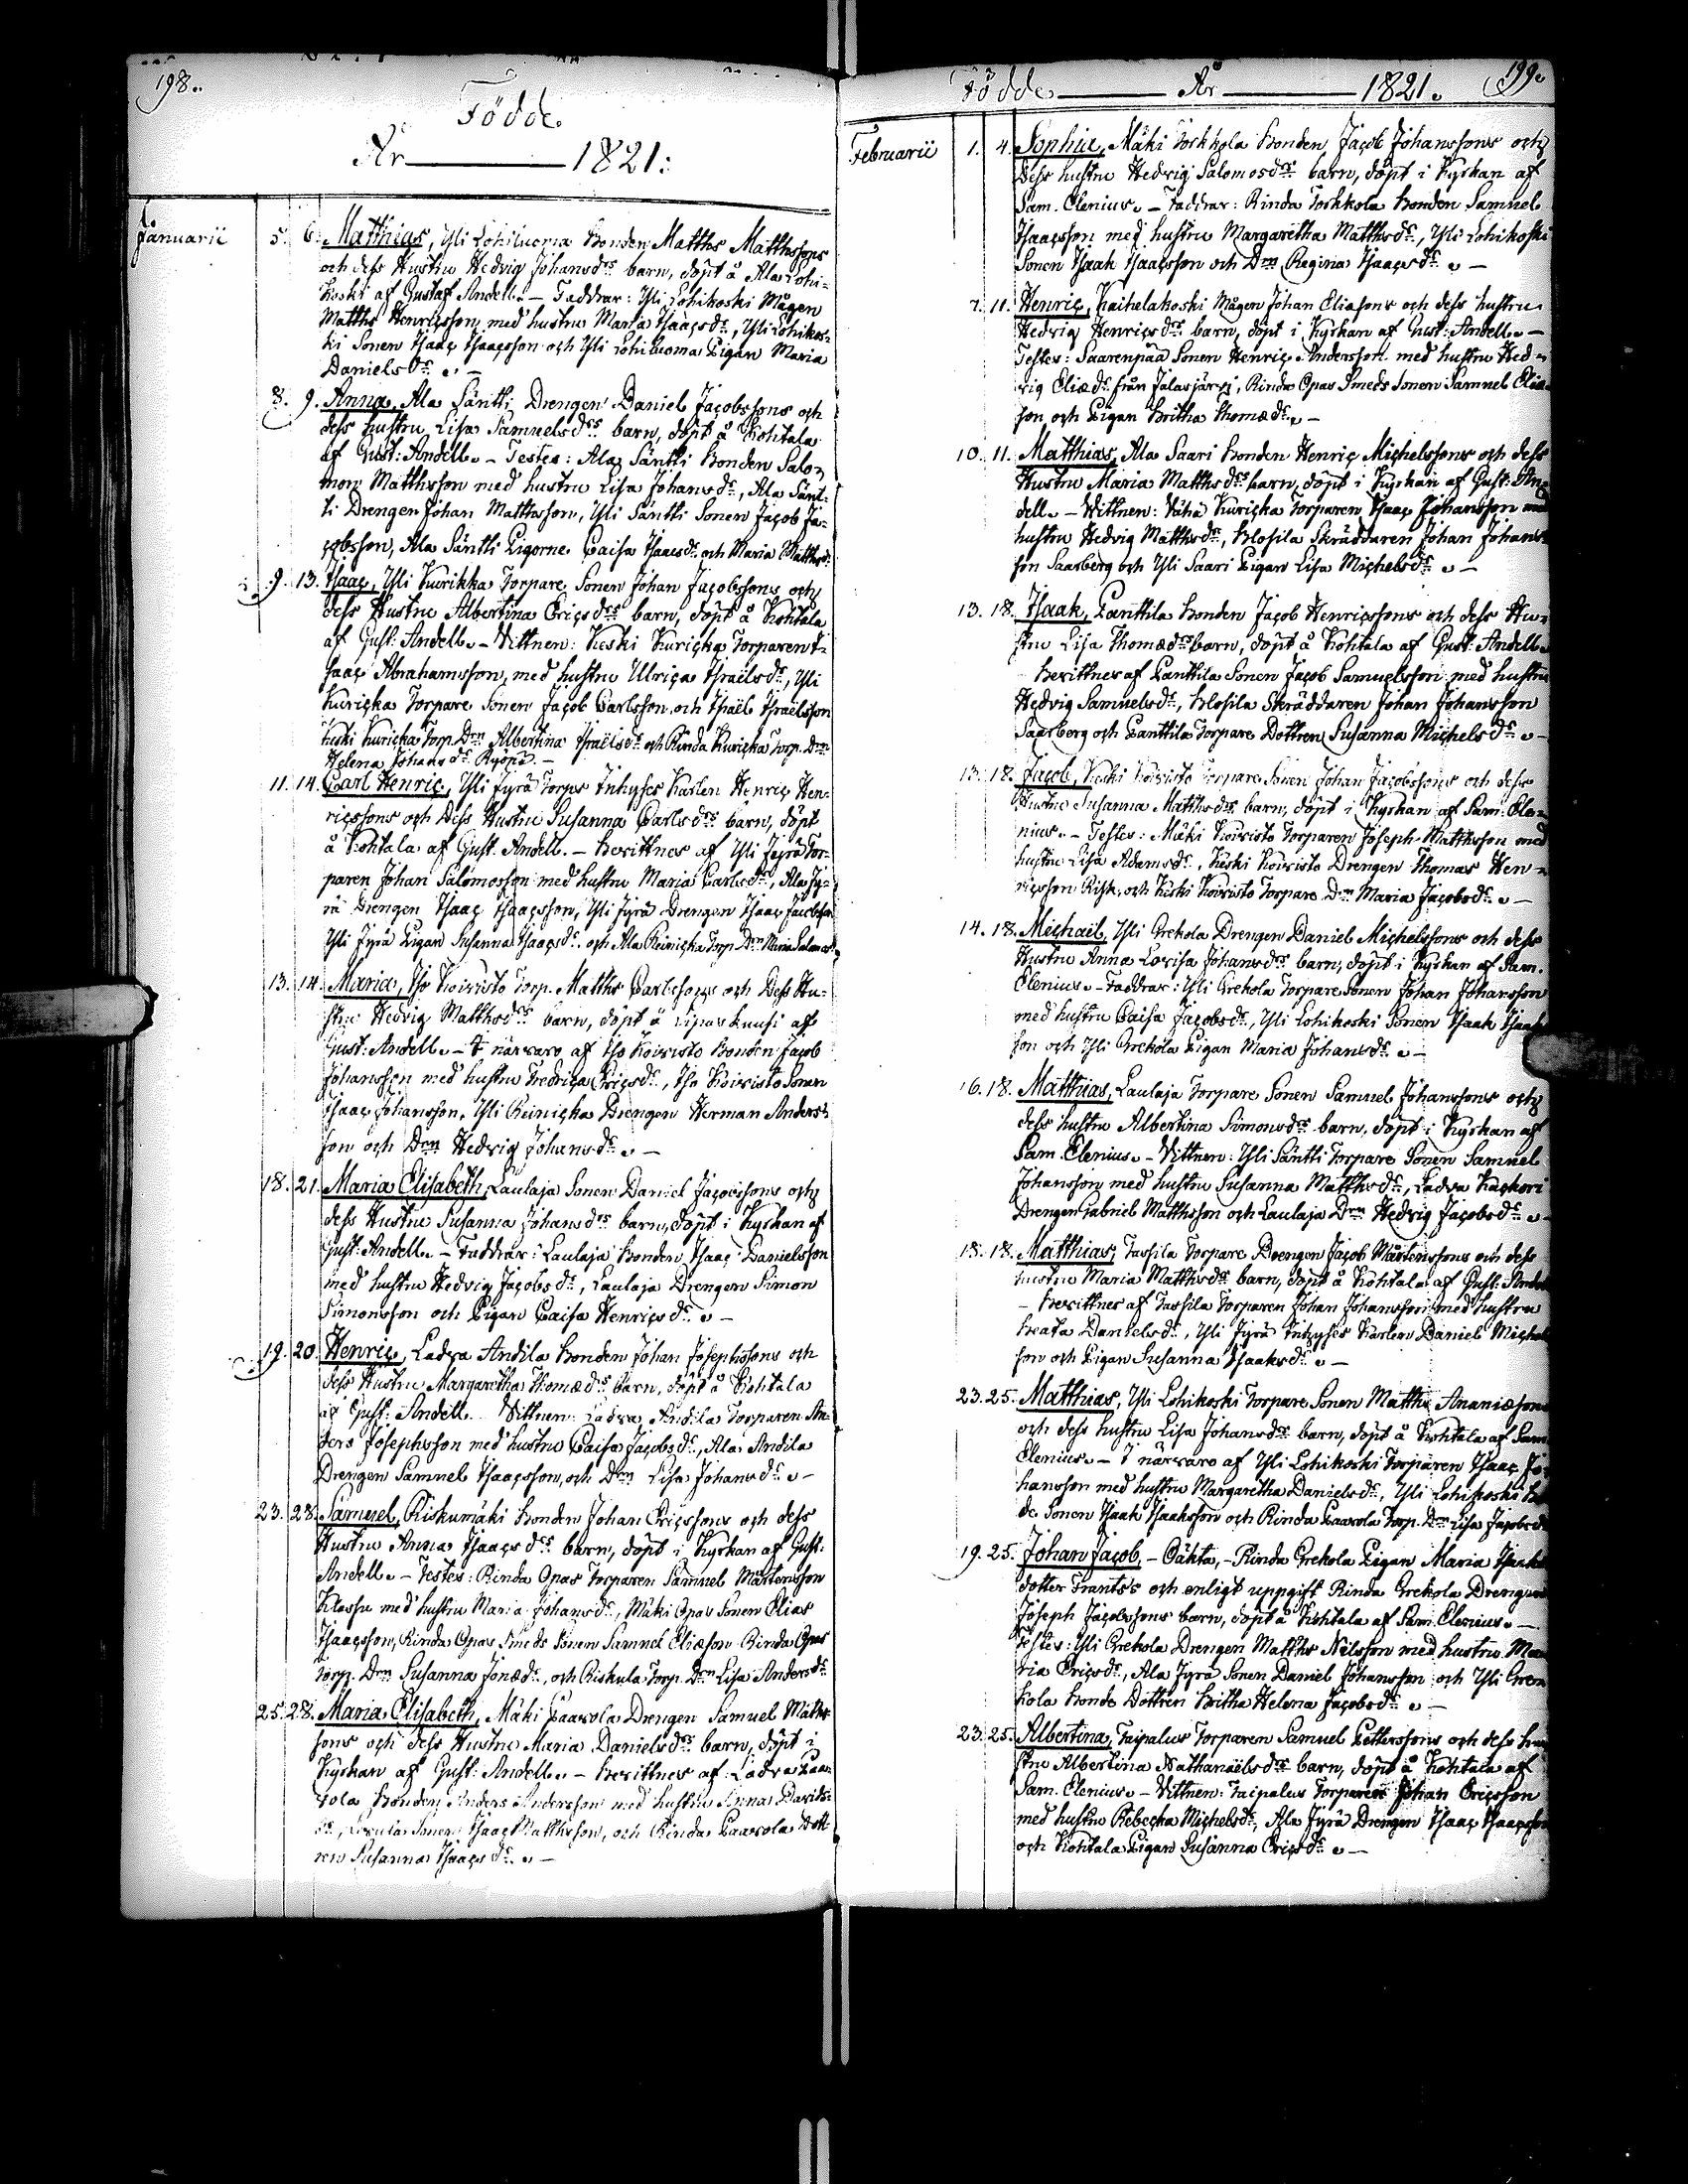 198.
Födde
År 1821:
Januarii 5. 6. Matthias, Yli Lohiluoma Bonden Matths Matthssons
och dess Hustru Hedvig Johansdrs barn, döpt å Ala Lohi-
koski af Gustaf Andell. – Faddrar: Yli Lohikoski Mågen
Matths Henricsson med hustru Maria Isaacsdr, Yli Lohikos-
ki Sonen Isaac Isaacsson och Yli Lohiluoma Pigan Maria
Danielsdr. –
8. 9. Anna, Ala Säntti Drengen Daniel Jacobssons och
dess hustru Lisa Samuelsdrs barn, döpt å Kohtala
af Gust: Andell. – Testes: Ala Säntti Bonden Salo-
mon Matthsson med hustru Lisa Johansdr, Ala Sänt-
ti Drengen Johan Matthsson, Yli Säntti Sonen Jacob Ja-
cobsson, Ala Säntti Pigorne Caisa Isaacsdr och Maria Matthsdr.
9. 13. Isaac, Yli Kurikka Torpare Sonen Johan Jacobssons och
dess Hustru Albertina Ericsdrs barn, döpt å Kohtala
af Gust: Andell. – Vittnen: Keski Kuricka Torparen I-
saac Abrahamsson, med hustru Ulrica Israelsdr, Yli
Kuricka Torpare Sonen Jacob Carlsson och Israël Israëlsson
Keski Kuricka Torp. Drn Albertina Israëlsdr och Rinda Kuricka Torp. Drn
Helena Johansdr Ryöpä. –
11. 14. Carl Henric, Yli Jyrä Torps Inhyses Karlen Henric Hen-
ricssons och Dess Hustru Susanna Carlsdrs barn, döpt
å Kohtala af Gust. Andell. – Bevittnes af Yli Jyrä Tor-
paren Johan Salomosson med hustru Maria Carlsdr, Ala Jy-
rä Drengen Isaac Isaacsson, Yli Jyrä Drengen Isaac Jacobsson
Yli Jyrä Pigan Susanna Isaacsdr och Ala Reinicka Torp. Drn Maria
13. 14. Maria, Iso Koivisto Torp. Matths Carlssons och Dess Hu-
stru Hedvig Matthsdrs barn, döpt å af
Gust: Andell. – I närvaro af Iso Koivisto Bonden Jacob
Johansson med hustru Fredrica Ericsdr, Iso Koivisto Sonen
Isaac Johansson, Yli Reinicka Drengen Herman Anders-
son och Drn Hedvig Johansdr. –
18. 21. Maria Elisabeth, Laulaja Sonen Daniel Jacobssons och
dess Hustru Susanna Johansdrs barn, döpt i Kyrkan af
Gust: Andell. – Faddrar: Laulaja Bonden Isaac Danielsson
med hustru Hedvig Jacobsdr, Laulaja Drengen Simon
Simonsson och Pigan Caisa Henricsdr. –
19. 20. Henric, Ladva Andila Bonden Johan Josephssons och
dess Hustru Margaretha Thomædrs barn, döpt å Kohtala
af Gust: Andell. Vittnen: Ladva Andila Torparen An-
ders Josephsson med hustru Caisa Jacobsdr, Ala Andila
Drengen Samuel Isaacsson, och Drn Lisa Johansdr. –
23. 28. Samuel, Riskumäki Bonden Johan Ericssons och dess
Hustru Anna Isaacsdrs barn, döpt i Kyrkan af Gust:
Andell. – Testes: Rinda Opas Torparen Samuel Mårtensson
Klasse med hustru Maria Johansdr, Mäki Opas Sonen Elias
Isaacsson, Rinda Opas Smeds Sonen Samuel Eliæson Rinda Opas
Torp. Drn Susanna Jonædr, och Riskula Torp. Drn Lisa Andersdr.
25. 28. Maria Elisabeth, Mäki Paavola Drengen Samuel Matths-
sons och dess Hustru Maria Danielsdrs barn, döpt i
Kyrkan af Gust: Andell. – Bevittnes af: Ladva Paa-
vola Bonden Anders Andersson med hustru Anna Davids-
dr, Sonen Isaac Matthsson, och Rinda Paavola Dott-
ren Susanna Isaacsdr. –
Födde År 1821. 199.
Februarii 1. 4. Sophia, Mäki Torkkola Bonden Jacob Johanssons och
Dess hustru Hedvig Salomosdrs barn, döpt i Kyrkan af
Sam. Clenius. – Faddrar: Rinda Torkkola Bonden Samuel
Isaacsson med hustru Margaretha Matthsdr, Yli Lohikoski
Sonen Isaak Isaacsson och Drn Regina Isaacsdr. –
7. 11. Henric, Kaihelakoski Mågen Johan Eliæsons och dess hustru
Hedvig Henricsdrs barn, döpt i Kyrkan af Gust: Andell. –
Testes: Saarenpää Sonen Henric Andersson med hustru Hed-
vig Eliædr från Jalasjärvi, Rinda Opas Smeds Sonen Samuel Eliæ-
son och Pigan Britha Thomædr. –
10. 11. Matthias, Ala Saari Bonden Henric Michelssons och dess
Hustru Maria Matthsdrs barn, döpt i Kyrkan af Gust: An-
dell. – Vittnen: Vähä Kuricka Torparen Isaac Johansson med
hustru Hedvig Matthsdr, Klosila Skräddaren Johan Johans-
son Saarberg och Yli Saari Pigan Lisa Michelsdr. –
13. 18. Isaak, Panttila Bonden Jacob Henricssons och dess Hu-
stru Lisa Thomædrs barn, döpt å Kohtala af Gust: Andell.
Bevittnes af Panttila Sonen Jacob Samuelsson med hustru
Hedvig Samuelsdr, Klosila Skräddaren Johan Johansson
Saarberg och Panttila Torpare Dottren Susanna Michelsdr. –
13. 18. Jacob, Keski Koivisto Torpare Sonen Johan Jacobssons och dess
Hustru Susanna Matthsdrs barn, döpt i Kyrkan af Sam: Cle-
nius. – Testes: Mäki Koivisto Torparen Joseph Matthsson med
hustru Lisa Adamsdr, Keski Koivisto Drengen Thomas Hen-
ricsson Risk, och Keski Koivisto Torpare Drn Maria Jacobsdr. –
14. 18. Michaël, Yli Grekola Drengen Daniel Michelssons och dess
Hustru Anna Lovisa Johansdrs barn, döpt i Kyrkan af Sam.
Clenius. – Faddrar: Yli Grekola Torpare Sonen Johan Johansson
med hustru Caisa Jacobsdr, Yli Lohikoski Sonen Isaak Isaaks-
son och Yli Grekola Pigan Maria Johansdr. –
16. 18. Matthias, Laulaja Torpare Sonen Samuel Johanssons och
dess hustru Albertina Simonsdrs barn, döpt i Kyrkan af
Sam. Clenius. – Vittnen: Yli Säntti Torpare Sonen Samuel
Johansson med hustru Susanna Matthsdr, Ladva Kaskori
Drengen Gabriel Matthsson och Laulaja Drn Hedvig Jacobsdr. –
18. 18. Matthias, Tassila Torpare Drengen Jacob Mårtenssons och dess
hustru Maria Matthsdrs barn, döpt å Kohtala af Gust: Andell
– Bevittnes af Tassila Torparen Johan Johansson med hustru
Beata Danielsdr, Yli Jyrä Inhyses Karlen Daniel Michels-
son och Pigan Susanna Isaaksdr. –
23. 25. Matthias, Yli Lohikoski Torpare Sonen Matths Ananiæsons
och dess hustru Lisa Johansdrs barn, döpt å Kohtala af Sam.
Clenius. – I närvaro af Yli Lohikoski Torparen Isaac Jo-
hansson med hustru Margaretha Danielsdr, Yli Lohikoski Bon-
de Sonen Isaak Isaaksson och Rinda Paavola Torp. Drn Lisa Jacobsdr
19. 25. Johan Jacob, – Oäkta, – Rinda Grekola Pigan Maria Isaaks
dotter Frants's och enligt uppgift Rinda Grekola Drengen
Joseph Jacobssons barn, döpt å Kohtala af Sam. Clenius. –
Testes: Yli Grekola Drengen Matths Nilsson med hustru Ma-
ria Ericsdr, Ala Jyrä Sonen Daniel Johansson och Yli Gre-
kola Bonde Dottren Britha Helena Jacobsdr. –
23. 25. Albertina, Taipalus Torparen Samuel Petterssons och dess hu-
stru Albertina Nathanaëlsdrs barn, döpt å Kohtala af
Sam. Clenius. – Vittnen: Taipalus Torparen Johan Ericsson
med hustru Rebecka Michelsdr, Ala Jyrä Drengen Isaac Isaacsson
och Kohtala Pigan Susanna Ericsdr. –